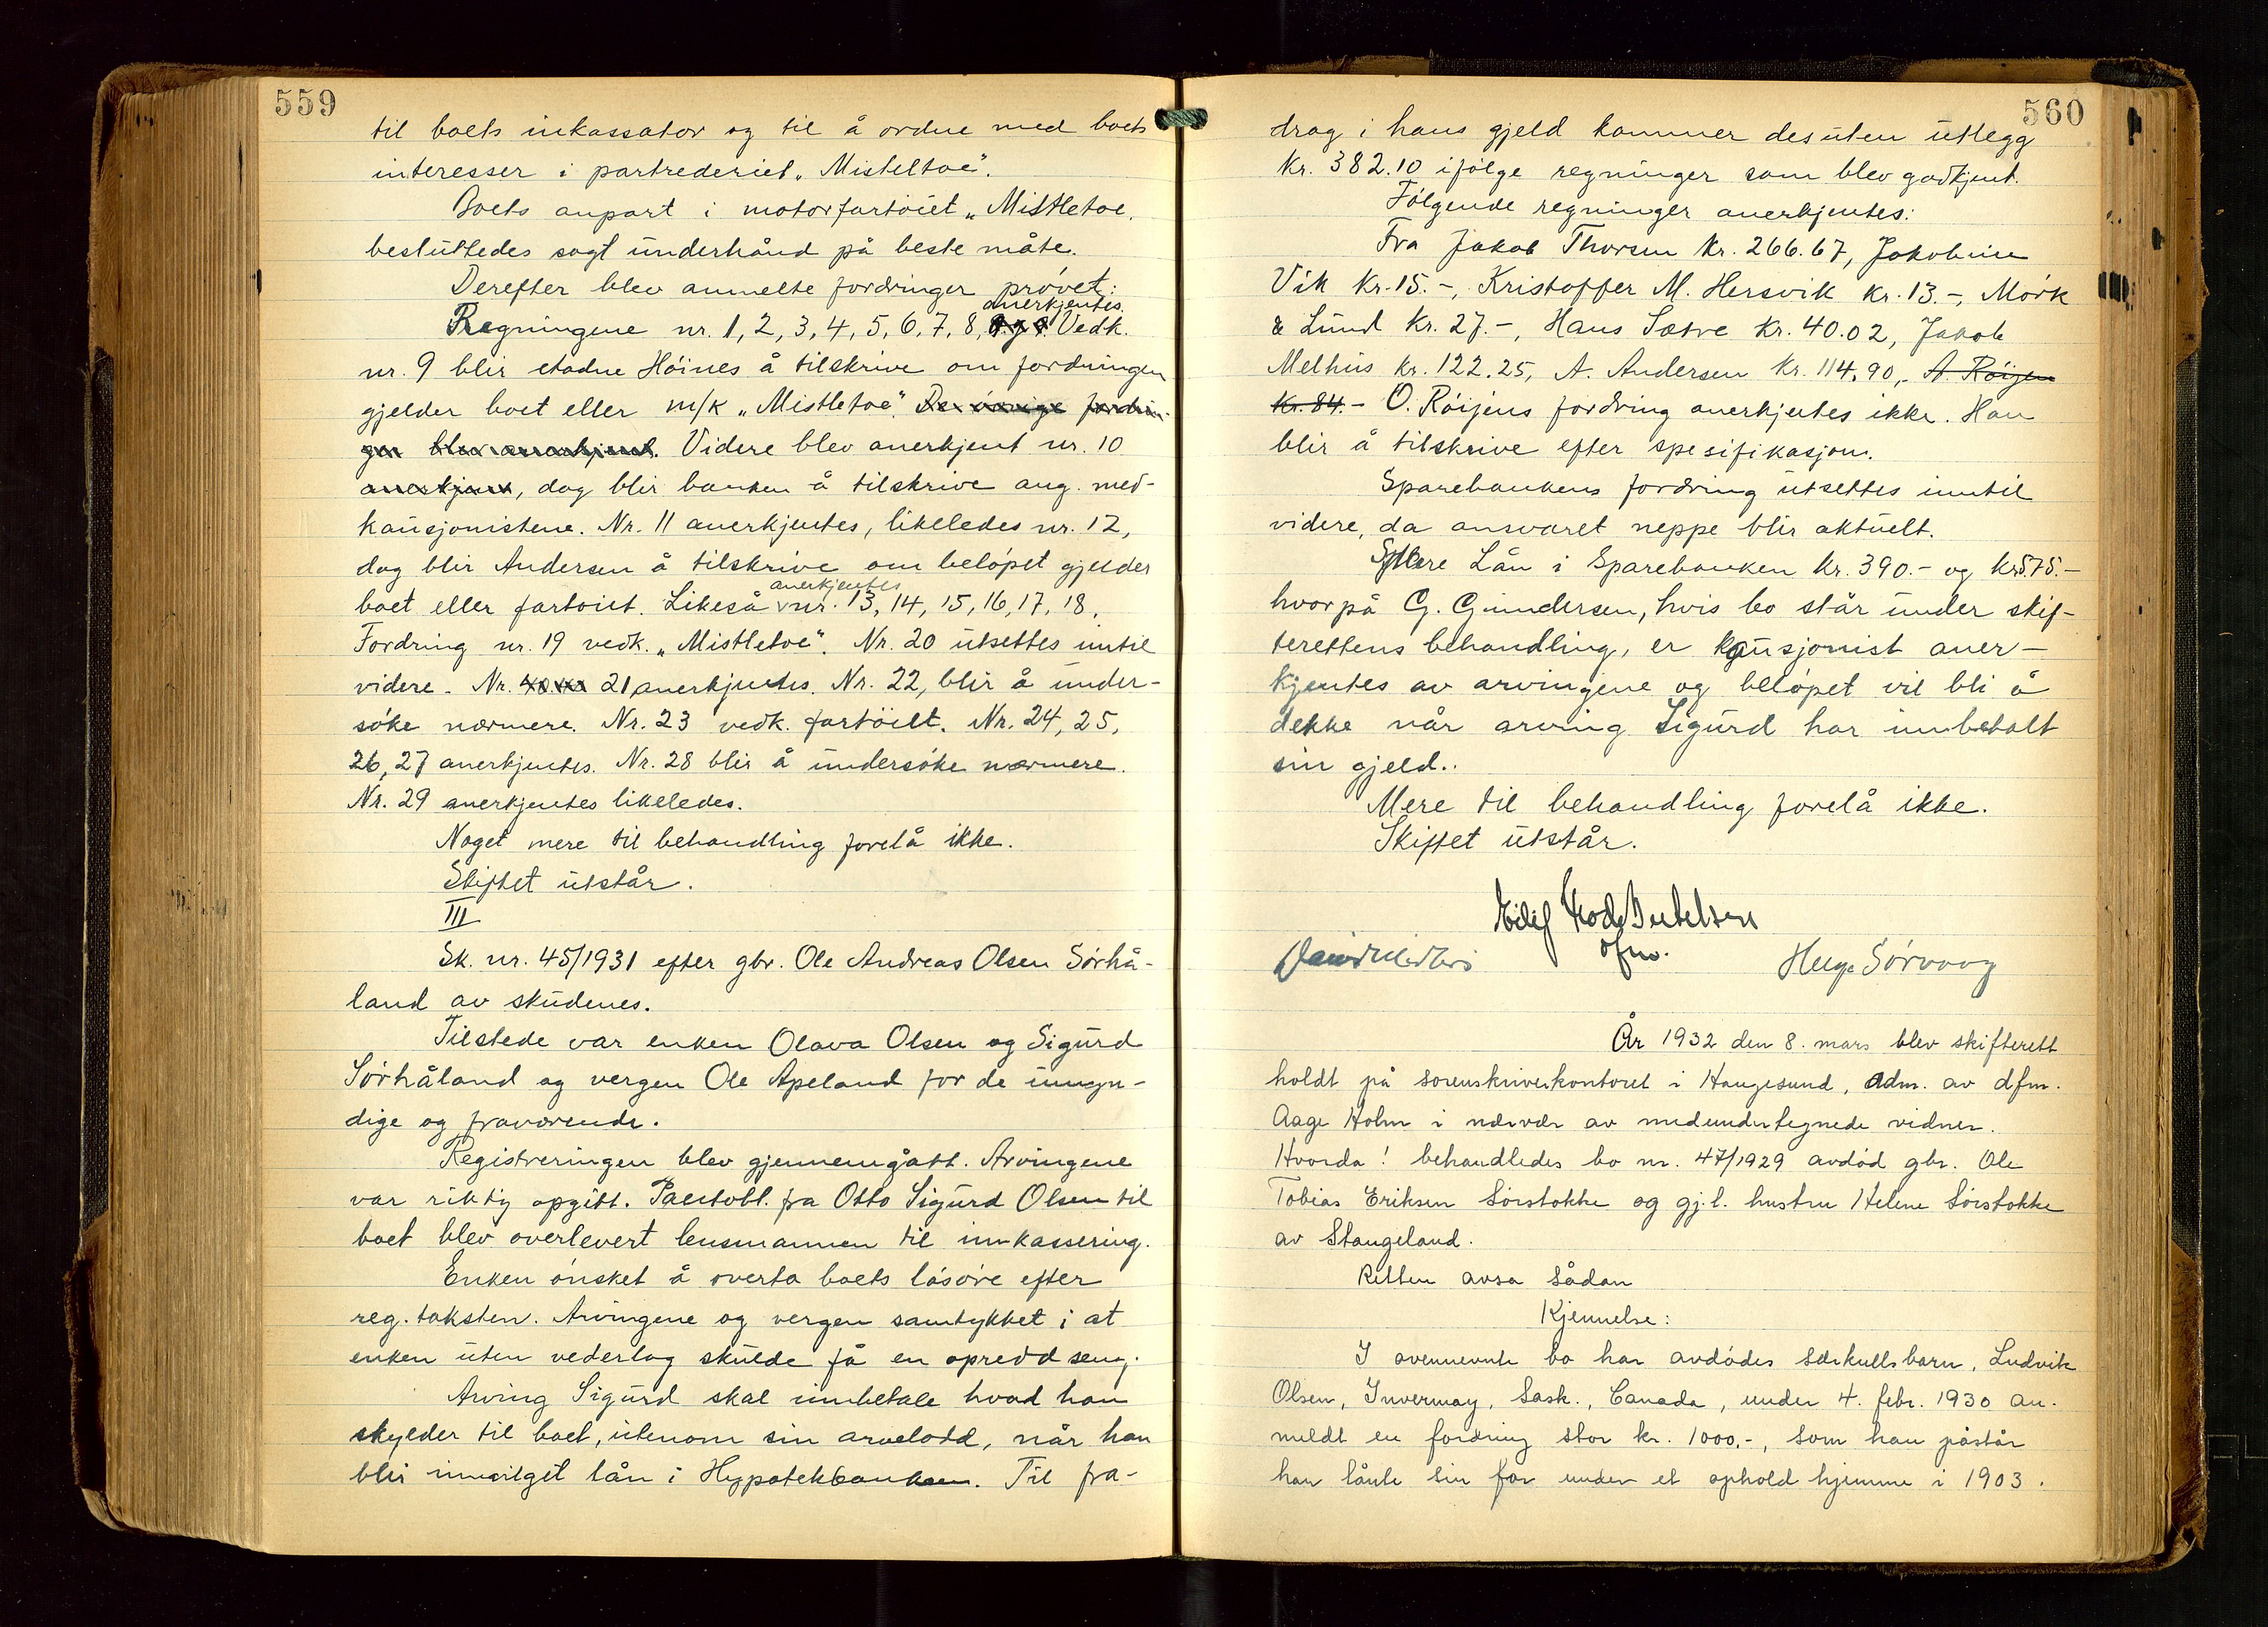 559
til boets inkassator og til å ordne med boets
interesser i partrederiet „Misteltoe“.
Boets anpart i motorfartøiet „Mistletoe.
besluttedes sogt underhånd på beste måte.
Derefter blev anmelte fordringer prøvet:
anerkjentes.
Regningene nr. 1, 2, 3, 4, 5, 6, 7, 8, Vedk.
nr. 9 blir etadne Høines å tilskrive om fordringen
gjelder boet eller m/k „Mistletoe“. De øvrige fordrin-
ger blev anerkjent. Videre blev anerkjent nr. 10
anerkjent, dog blir banken å tilskrive ang. med-
kausjonistene. Nr. 11 anerkjentes, likeledes nr. 12,
dog blir Andersen å tilskrive om beløpet gjelder
anerkjentes
boet eller fartøiet. Likeså nr. 13, 14, 15, 16, 17, 18.
Fordring nr. 19 vedk. „Mistletoe“. Nr. 20 utsettes inntil
videre. Nr. 21 anerkjentes. Nr. 22, blir å under-
søke nærmere. Nr. 23 vedk. fartöiet. Nr. 24, 25,
26, 27 anerkjentes. Nr. 28 blir å undersøke nærmere.
Nr. 29 anerkjentes likeledes.
Noget mere til behandling forelå ikke.
Skiftet utstår.
III
Sk. nr. 45/1931 efter gbr. Ole Andreas Olsen Sørhå-
land av skudenes.
Tilstede var enken Olava Olsen og Sigurd
Sørhåland og vergen Ole Apeland for de umyn-
dige og fraværende.
Registreringen blev gjennemgått. Arvingene
var riktig opgitt. Pantobl. fra Otto Sigurd Olsen til
boet blev overlevert lensmannen til innkassering.
Enken ønsket å overta boets løsøre efter
reg. taksten. Arvingene og vergen samtykket i at
enken uten vederlag skulde få en opredd seng.
Arving Sigurd skal innbetale hvad han
skylder til boet, utenom sin arvelodd, når han
blir innvilget lån i Hypotekbanken. Til fra-
560
drag i hans gjeld kommer desuten utlegg
kr. 382.10 ifølge regninger som blev godkjent.
Følgende regninger anerkjentes:
Fra Jakob Thorsen kr. 266.67, Jakobine
Vik kr. 15.-, Kristoffer M. Hersvik kr. 13.-, Mørk
& Lund kr. 27.-, Hans Sætre kr. 40.02, Jakob
Melhus kr. 122.25, A. Andersen kr. 114.90, A. Røijen
kr. 84.- O. Røijens fordring anerkjentes ikke. Han
blir å tilskrive efter spesifikasjon.
Sparebankens fordring utsettes inntil
videre, da ansvaret neppe blir aktuelt.
Lån i Sparebanken kr. 390.- og kr. 575.-
hvorpå G. Gundersen, hvis bo står under skif-
terettens behandling, er kausjonist aner-
kjentes av arvingene og beløpet vil bli å
dekke når arving Sigurd har innbetalt
sin gjeld.
Mere til behandling forelå ikke.
Skiftet utstår.
ofm.
Helge Sørvaag
År 1932 den 8. mars blev skifterett
holdt på sorenskriverkontoret i Haugesund, adm. av dfm.
Aage Holm i nærvær av medundertegnede vidner.
Hvorda! behandledes bo nr. 47/1929 avdød gbr. Ole
Tobias Eriksen Sørstokke og gj.l. hustru Helene Sørstokke
av Stangeland.
Retten avsa sådan
Kjennelse:
I ovennevnte bo har avdødes særkullsbarn, Ludvik
Olsen, Invermay, Sask., Canada, under 4. febr. 1930 an-
meldt en fordring stor kr. 1000.-, som han påstår
han lånte sin far under et ophold hjemme i 1903.